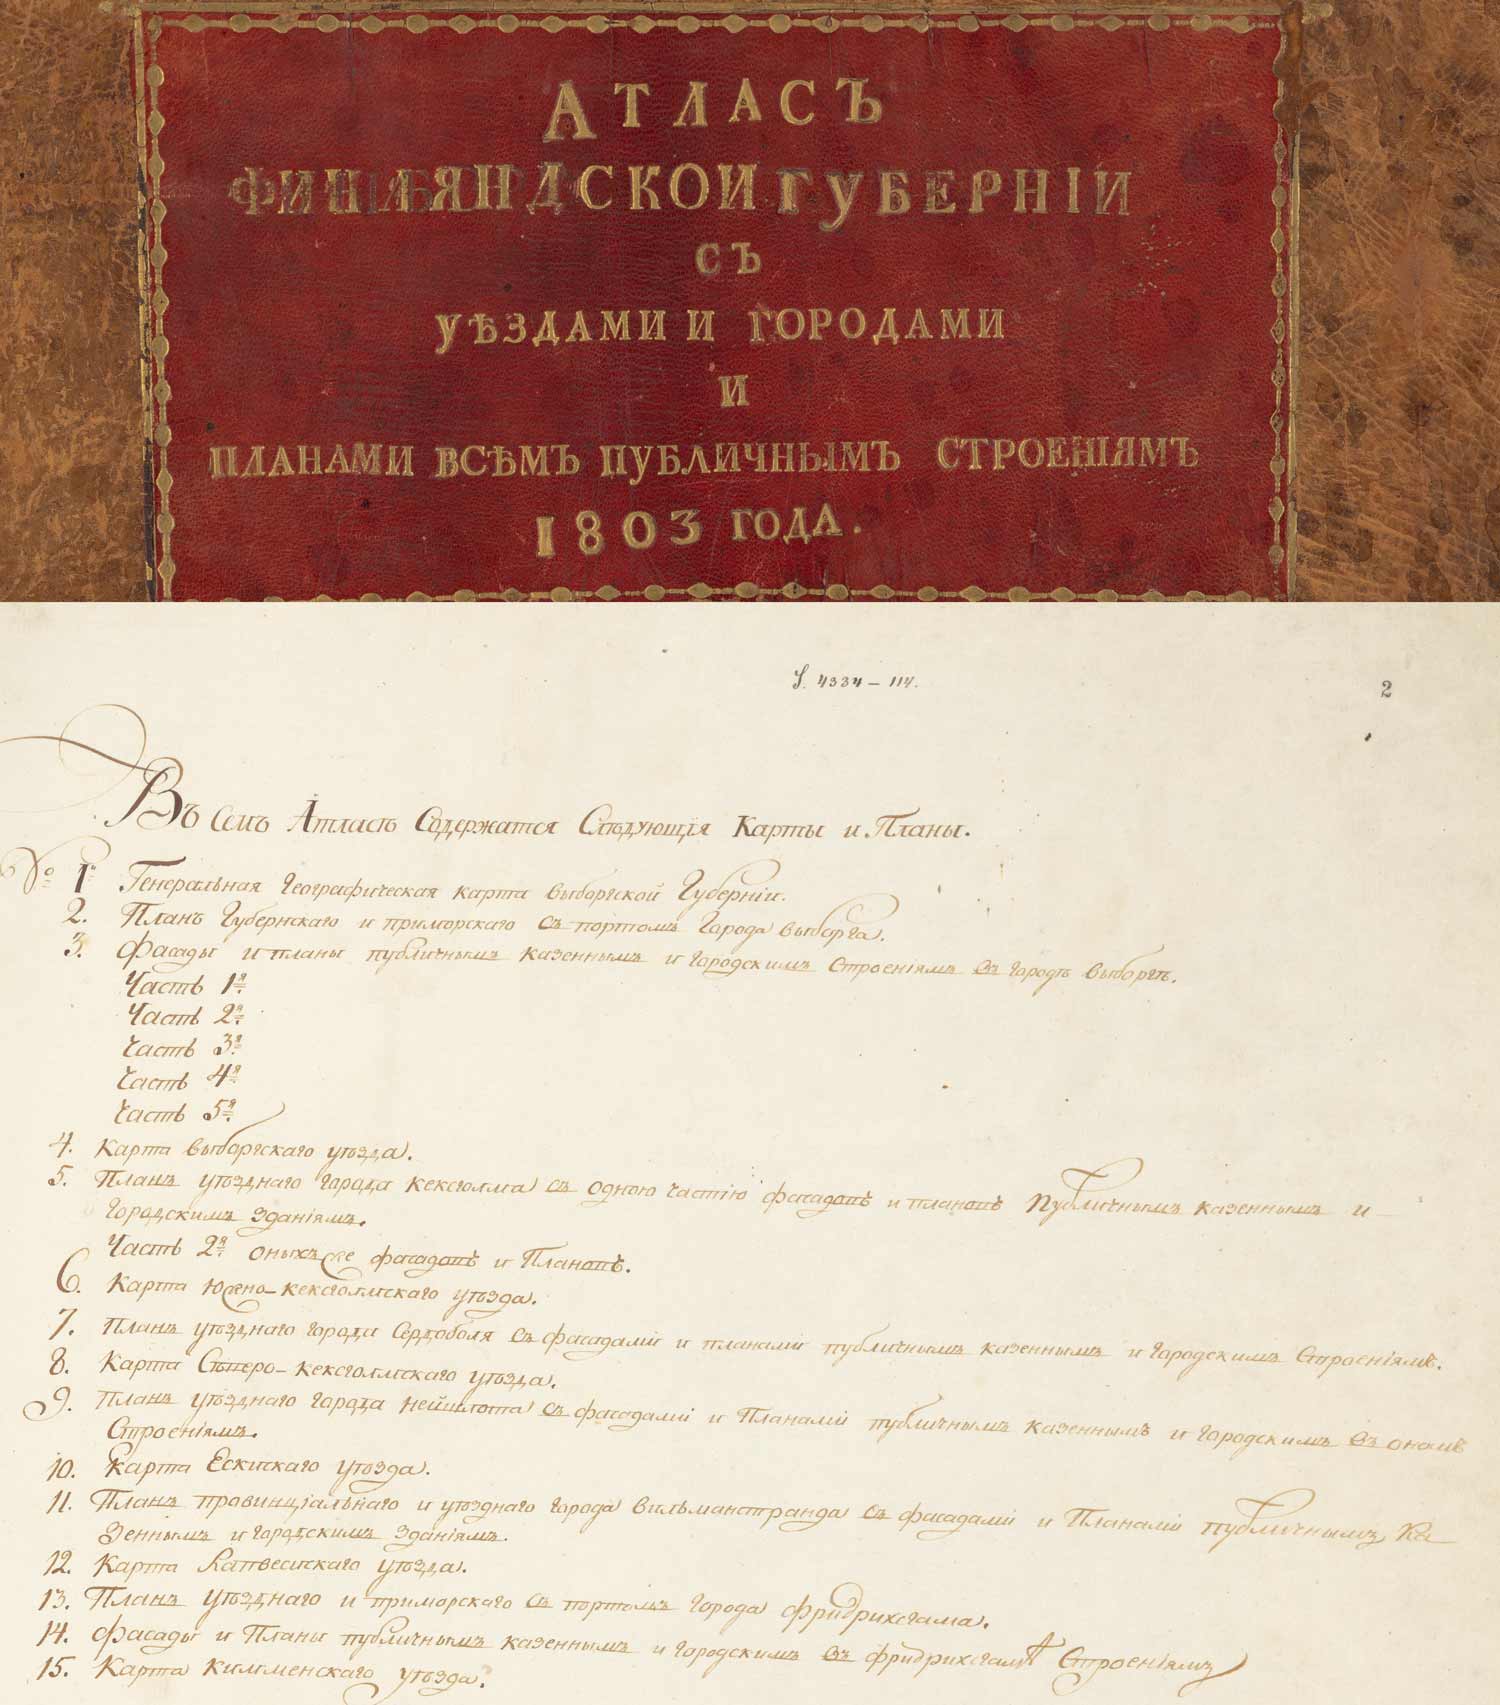 АТЛАСЪ
ФИНЛЯНДСКОИ ГУБЕРНІИ
СЪ
УѢЗДАМИ И ГОРОДАМИ
И
ПЛАНАМИ ВСѢМЪ ПУБЛИЧНЫМЪ СТРОЕНІЯМЪ
1803 ГОДА.
4334 – 114.
2
Въ Семъ Атласѣ Содержатся Слѣдующія Карты и Планы.
№ 1й Генеральная Географическая карта выборгской Губерніи.
2. Планъ Губернскаго и приморскаго съ портомъ Города выборга.
3. Фасады и планы публичнымъ казеннымъ и городскимъ строеніямъ въ городѣ выборгѣ.
Часть 1я.
Часть 2я.
Часть 3я.
Часть 4я.
Часть 5я.
4. Карта выборгскаго уѣзда.
5. Планъ уѣзднаго города кексголма съ одною частію фасадовъ и плановъ Публичнымъ казеннымъ и
Городскимъ зданіямъ.
Часть 2я оныхъ же фасадовъ и Плановъ.
6. Карта Южно-кексголмскаго уѣзда.
7. Планъ уѣзднаго города Сердоболя съ фасадами и планами публичнымъ казеннымъ и городскимъ Строеніямъ.
8. Карта Сѣверо-кексголмскаго уѣзда.
9. Планъ уѣзднаго города нейшлота съ фасадами и Планами публичнымъ казеннымъ и городскимъ въ ономъ
Строеніямъ.
10. Карта Ескискаго уѣзда.
11. Планъ провинціальнаго и уѣзднаго города вильманстранда съ фасадами и Планами публичнымъ Ка
зеннымъ и городскимъ зданіямъ.
12. Карта уѣзда.
13. Планъ уѣзднаго и приморскаго съ портомъ города фридрихсгама.
14. Фасады и Планы публичнымъ казеннымъ и городскимъ въ фридрихсгамѣ Строеніямъ
15. Карта килменскаго уѣзда.